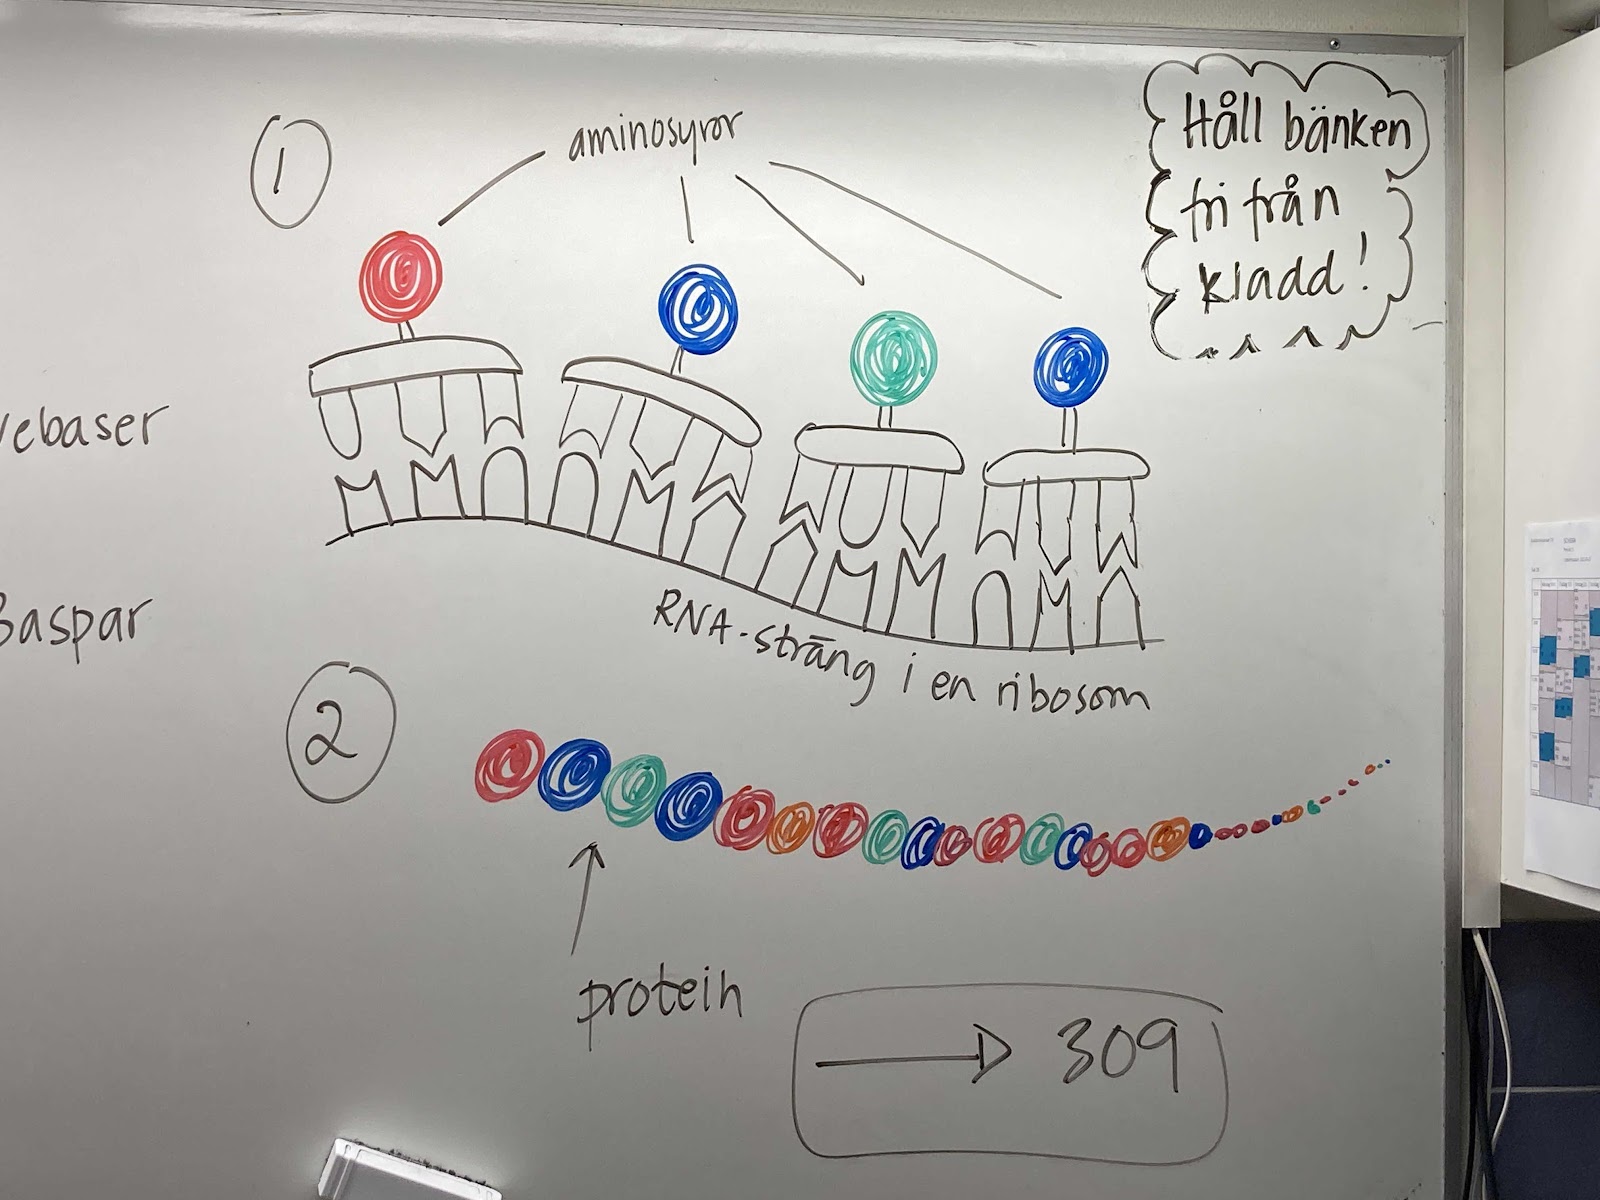 1
aminosyror
Håll bänken
fri från
kladd!
vebaser
Baspar
RNA-sträng i en ribosom
2
protein
309